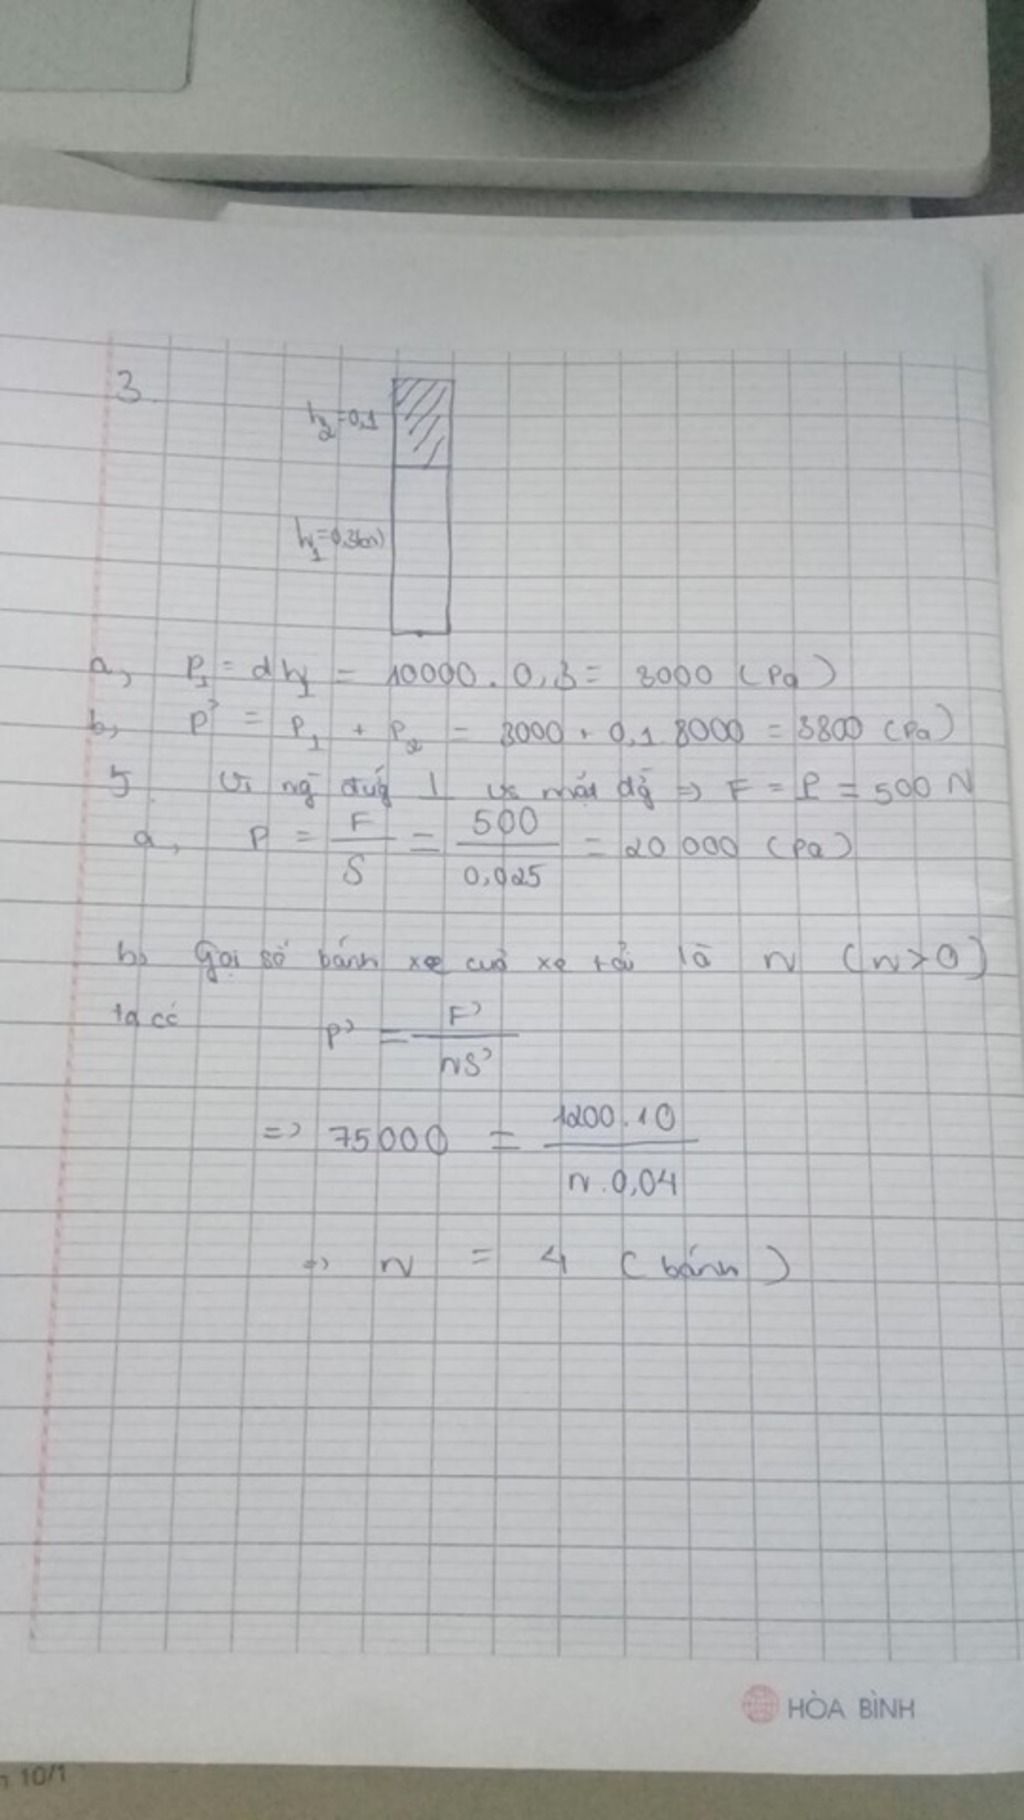 3.
h₂=0,1
h₁=0,3(m)
a, P₁ = dh₁ = 10000. 0,3 = 3000 (Pa)
b, P' = P₁ + P₂ = 3000 + 0,1 8000 = 3800 (Pa)
5. Vì ng đứng ⊥ vs mặt => F = P = 500 N
a, P = F/S = 500/0,025 = 20 000 (Pa)
b, Gọi số bánh xe của xe tải là n (n>0)
ta có P' = F'/nS'
=> 75000 = 1200.10/n.0,04
=> n = 4 (bánh)
HÒA BÌNH
10/1